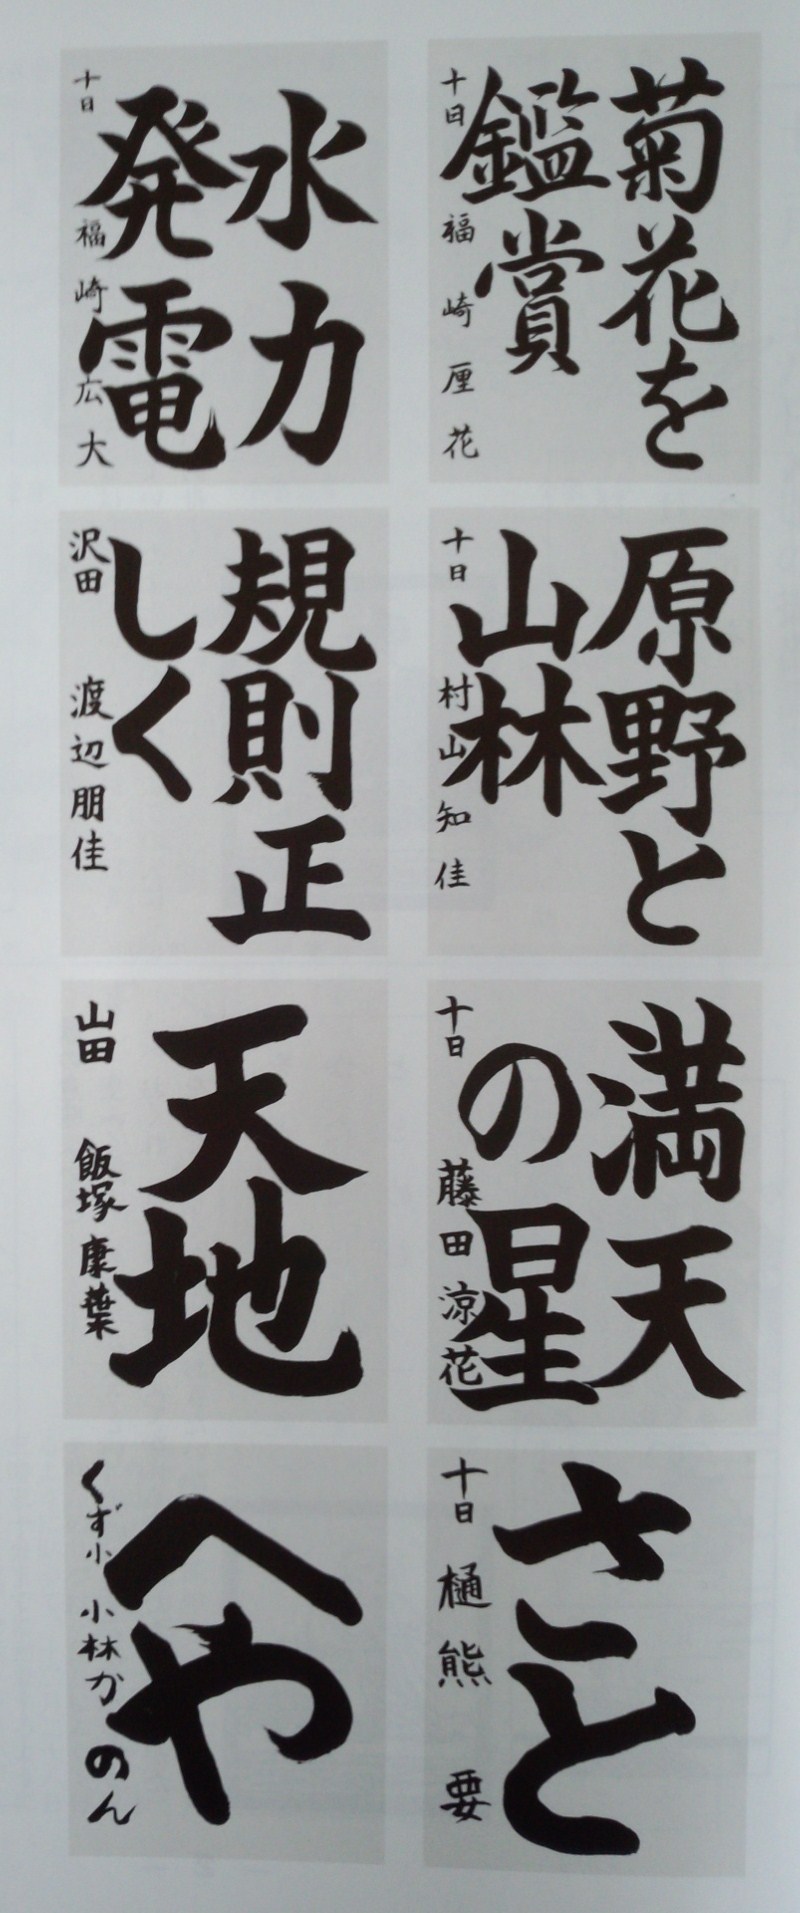 菊花を
鑑賞
十日 福崎厘花
水力
発電
十日 福崎広大
原野と
山林
十日 村山知佳
規則正
しく
沢田 渡辺朋佳
満天
の星
十日 藤田涼花
天地
山田 飯塚康葉
さと
十日 樋熊 要
へや
くず小 小林かのん